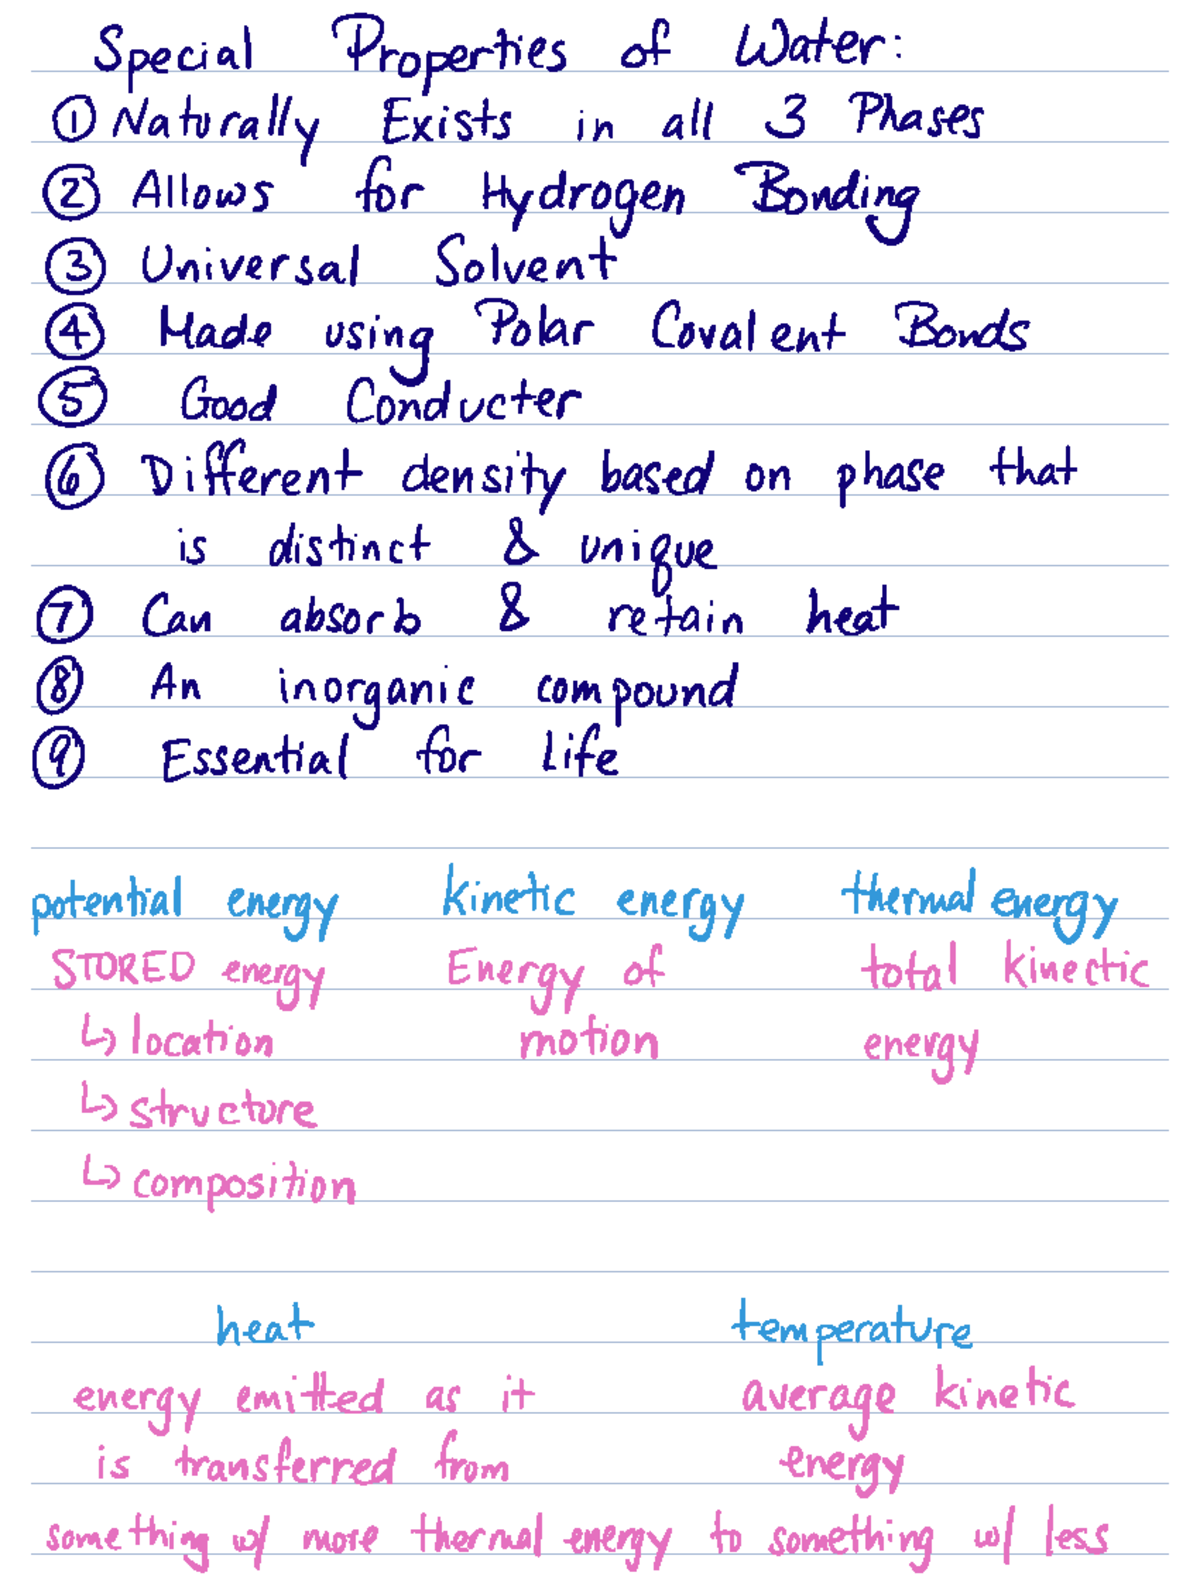 Special Properties of Water:
① Naturally Exists in all 3 Phases
② Allows for Hydrogen Bonding
③ Universal Solvent
④ Made using Polar Covalent Bonds
⑤ Good Conducter
⑥ Different density based on phase that
is distinct & unique
⑦ Can absorb & retain heat
⑧ An inorganic compound
⑨ Essential for Life
potential energy kinetic energy thermal energy
STORED energy Energy of total kinectic
↳ location motion energy
↳ structure
↳ composition
heat temperature
energy emitted as it average kinetic
is transferred from energy
something w/ more thermal energy to something w/ less